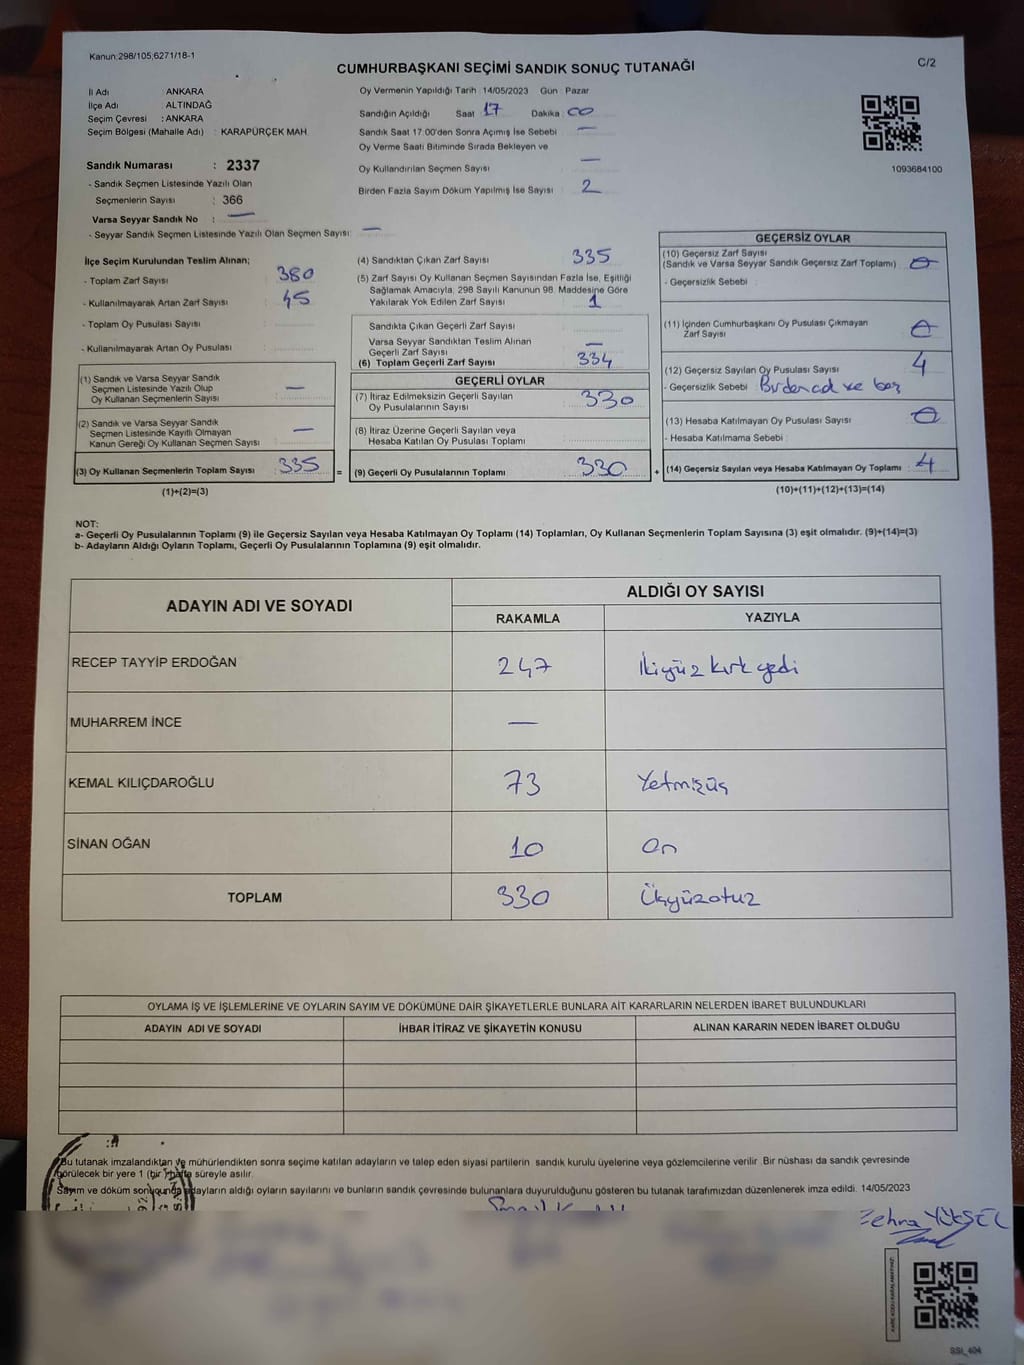 Kanun:298/105;6271/18-1
CUMHURBAŞKANI SEÇİMİ SANDIK SONUÇ TUTANAĞI
C/2
İl Adı : ANKARA
İlçe Adı : ALTINDAĞ
Seçim Çevresi : ANKARA
Seçim Bölgesi (Mahalle Adı) : KARAPÜRÇEK MAH.
Sandık Numarası : 2337
- Sandık Seçmen Listesinde Yazılı Olan
Seçmenlerin Sayısı : 366
Varsa Seyyar Sandık No : —
- Seyyar Sandık Seçmen Listesinde Yazılı Olan Seçmen Sayısı: —
Oy Vermenin Yapıldığı Tarih : 14/05/2023 Gün : Pazar
Sandığın Açıldığı Saat : 17 Dakika : 00
Sandık Saat 17:00'den Sonra Açımış İse Sebebi : —
Oy Verme Saati Bitiminde Sırada Bekleyen ve
Oy Kullandırılan Seçmen Sayısı : —
Birden Fazla Sayım Döküm Yapılmış İse Sayısı : 2
1093684100
İlçe Seçim Kurulundan Teslim Alınan;
- Toplam Zarf Sayısı : 380
- Kullanılmayarak Artan Zarf Sayısı : 45
- Toplam Oy Pusulası Sayısı :
- Kullanılmayarak Artan Oy Pusulası :
(1) Sandık ve Varsa Seyyar Sandık
Seçmen Listesinde Yazılı Olup
Oy Kullanan Seçmenlerin Sayısı : —
(2) Sandık ve Varsa Seyyar Sandık
Seçmen Listesinde Kayıtlı Olmayan
Kanun Gereği Oy Kullanan Seçmen Sayısı : —
(3) Oy Kullanan Seçmenlerin Toplam Sayısı : 335
(1)+(2)=(3)
(4) Sandıktan Çıkan Zarf Sayısı : 335
(5) Zarf Sayısı Oy Kullanan Seçmen Sayısından Fazla İse, Eşitliği
Sağlamak Amacıyla, 298 Sayılı Kanunun 98. Maddesine Göre
Yakılarak Yok Edilen Zarf Sayısı : 1
Sandıkta Çıkan Geçerli Zarf Sayısı :
Varsa Seyyar Sandıktan Teslim Alınan
Geçerli Zarf Sayısı : —
(6) Toplam Geçerli Zarf Sayısı : 334
GEÇERLİ OYLAR
(7) İtiraz Edilmeksizin Geçerli Sayılan
Oy Pusulalarının Sayısı : 330
(8) İtiraz Üzerine Geçerli Sayılan veya
Hesaba Katılan Oy Pusulası Toplamı :
= (9) Geçerli Oy Pusulalarının Toplamı : 330 +
GEÇERSİZ OYLAR
(10) Geçersiz Zarf Sayısı
(Sandık ve Varsa Seyyar Sandık Geçersiz Zarf Toplamı) : 0
- Geçersizlik Sebebi :
(11) İçinden Cumhurbaşkanı Oy Pusulası Çıkmayan
Zarf Sayısı : 0
(12) Geçersiz Sayılan Oy Pusulası Sayısı : 4
- Geçersizlik Sebebi : ve boş
(13) Hesaba Katılmayan Oy Pusulası Sayısı : 0
- Hesaba Katılmama Sebebi :
(14) Geçersiz Sayılan veya Hesaba Katılmayan Oy Toplamı : 4
(10)+(11)+(12)+(13)=(14)
NOT:
a- Geçerli Oy Pusulalarının Toplamı (9) ile Geçersiz Sayılan veya Hesaba Katılmayan Oy Toplamı (14) Toplamları, Oy Kullanan Seçmenlerin Toplam Sayısına (3) eşit olmalıdır. (9)+(14)=(3)
b- Adayların Aldığı Oyların Toplamı, Geçerli Oy Pusulalarının Toplamına (9) eşit olmalıdır.
ADAYIN ADI VE SOYADI
ALDIĞI OY SAYISI
RAKAMLA YAZIYLA
RECEP TAYYİP ERDOĞAN 247 İkiyüz kırk yedi
MUHARREM İNCE —
KEMAL KILIÇDAROĞLU 73 Yetmişüç
SİNAN OĞAN 10 On
TOPLAM 330 Üçyüzotuz
OYLAMA İŞ VE İŞLEMLERİNE VE OYLARIN SAYIM VE DÖKÜMÜNE DAİR ŞİKAYETLERLE BUNLARA AİT KARARLARIN NELERDEN İBARET BULUNDUKLARI
ADAYIN ADI VE SOYADI İHBAR İTİRAZ VE ŞİKAYETİN KONUSU ALINAN KARARIN NEDEN İBARET OLDUĞU
Bu tutanak imzalandıktan ve mühürlendikten sonra seçime katılan adayların ve talep eden siyasi partilerin sandık kurulu üyelerine veya gözlemcilerine verilir. Bir nüshası da sandık çevresinde
görülecek bir yere 1 (bir) hafta süreyle asılır.
Sayım ve döküm sonucunda adayların aldığı oyların sayılarını ve bunların sandık çevresinde bulunanlara duyurulduğunu gösteren bu tutanak tarafımızdan düzenlenerek imza edildi. 14/05/2023
Zehra YÜKSEL
SSI_404